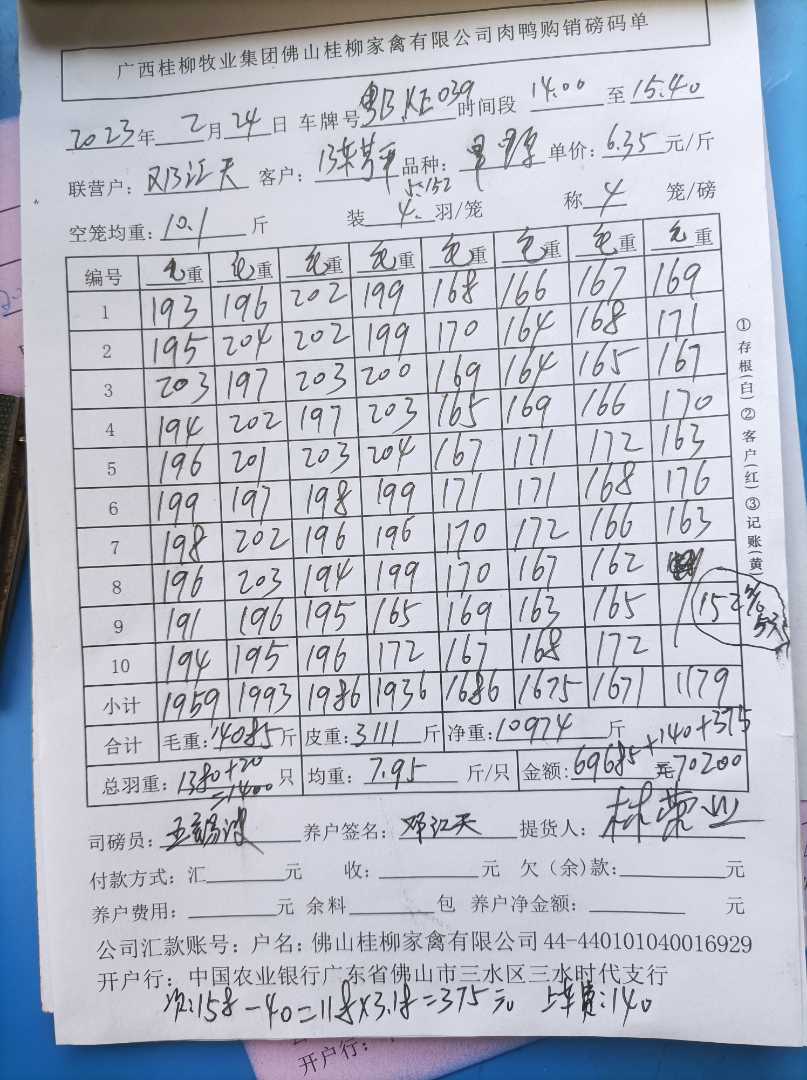 广西桂柳牧业集团佛山桂柳家禽有限公司肉鸭购销磅码单
2023年 2月24日 车牌号粤B.KE039时间段 14.00 至15.40
联营户:邓江天 客户: 品种: 单价:6.35元/斤
空笼均重:10.1 斤 装 4. 羽/笼 称 4 笼/磅
编号 毛重 毛重 毛重 毛重 毛重 毛重 毛重 毛重
1 193 196 202 199 168 166 167 169
2 195 204 202 199 170 164 168 171
3 203 197 203 200 169 164 165 167
4 194 202 197 203 165 169 166 170
5 196 201 203 204 167 171 172 163
6 199 197 198 199 171 171 168 176
7 198 202 196 196 170 172 166 163
8 196 203 194 199 170 167 162
9 191 196 195 165 169 163 165
10 194 195 196 172 167 168 172
小计 1959 1993 1986 1936 1686 1675 1671 1179
合计 毛重:14085斤 皮重:3111斤 净重:10974 斤
总羽重:1380+20=1400 只 均重:7.95 斤/只 金额:69685+140+375 元70200
司磅员: 养户签名:邓江天 提货人:林荣业
付款方式:汇 元 收: 元 欠(余)款: 元
养户费用: 元 余料 包 养户净金额: 元
公司汇款账号:户名:佛山桂柳家禽有限公司44-440101040016929
开户行:中国农业银行广东省佛山市三水区三水时代支行
上车费:140
①存根(白)②客户(红)③记账(黄)
开户行: